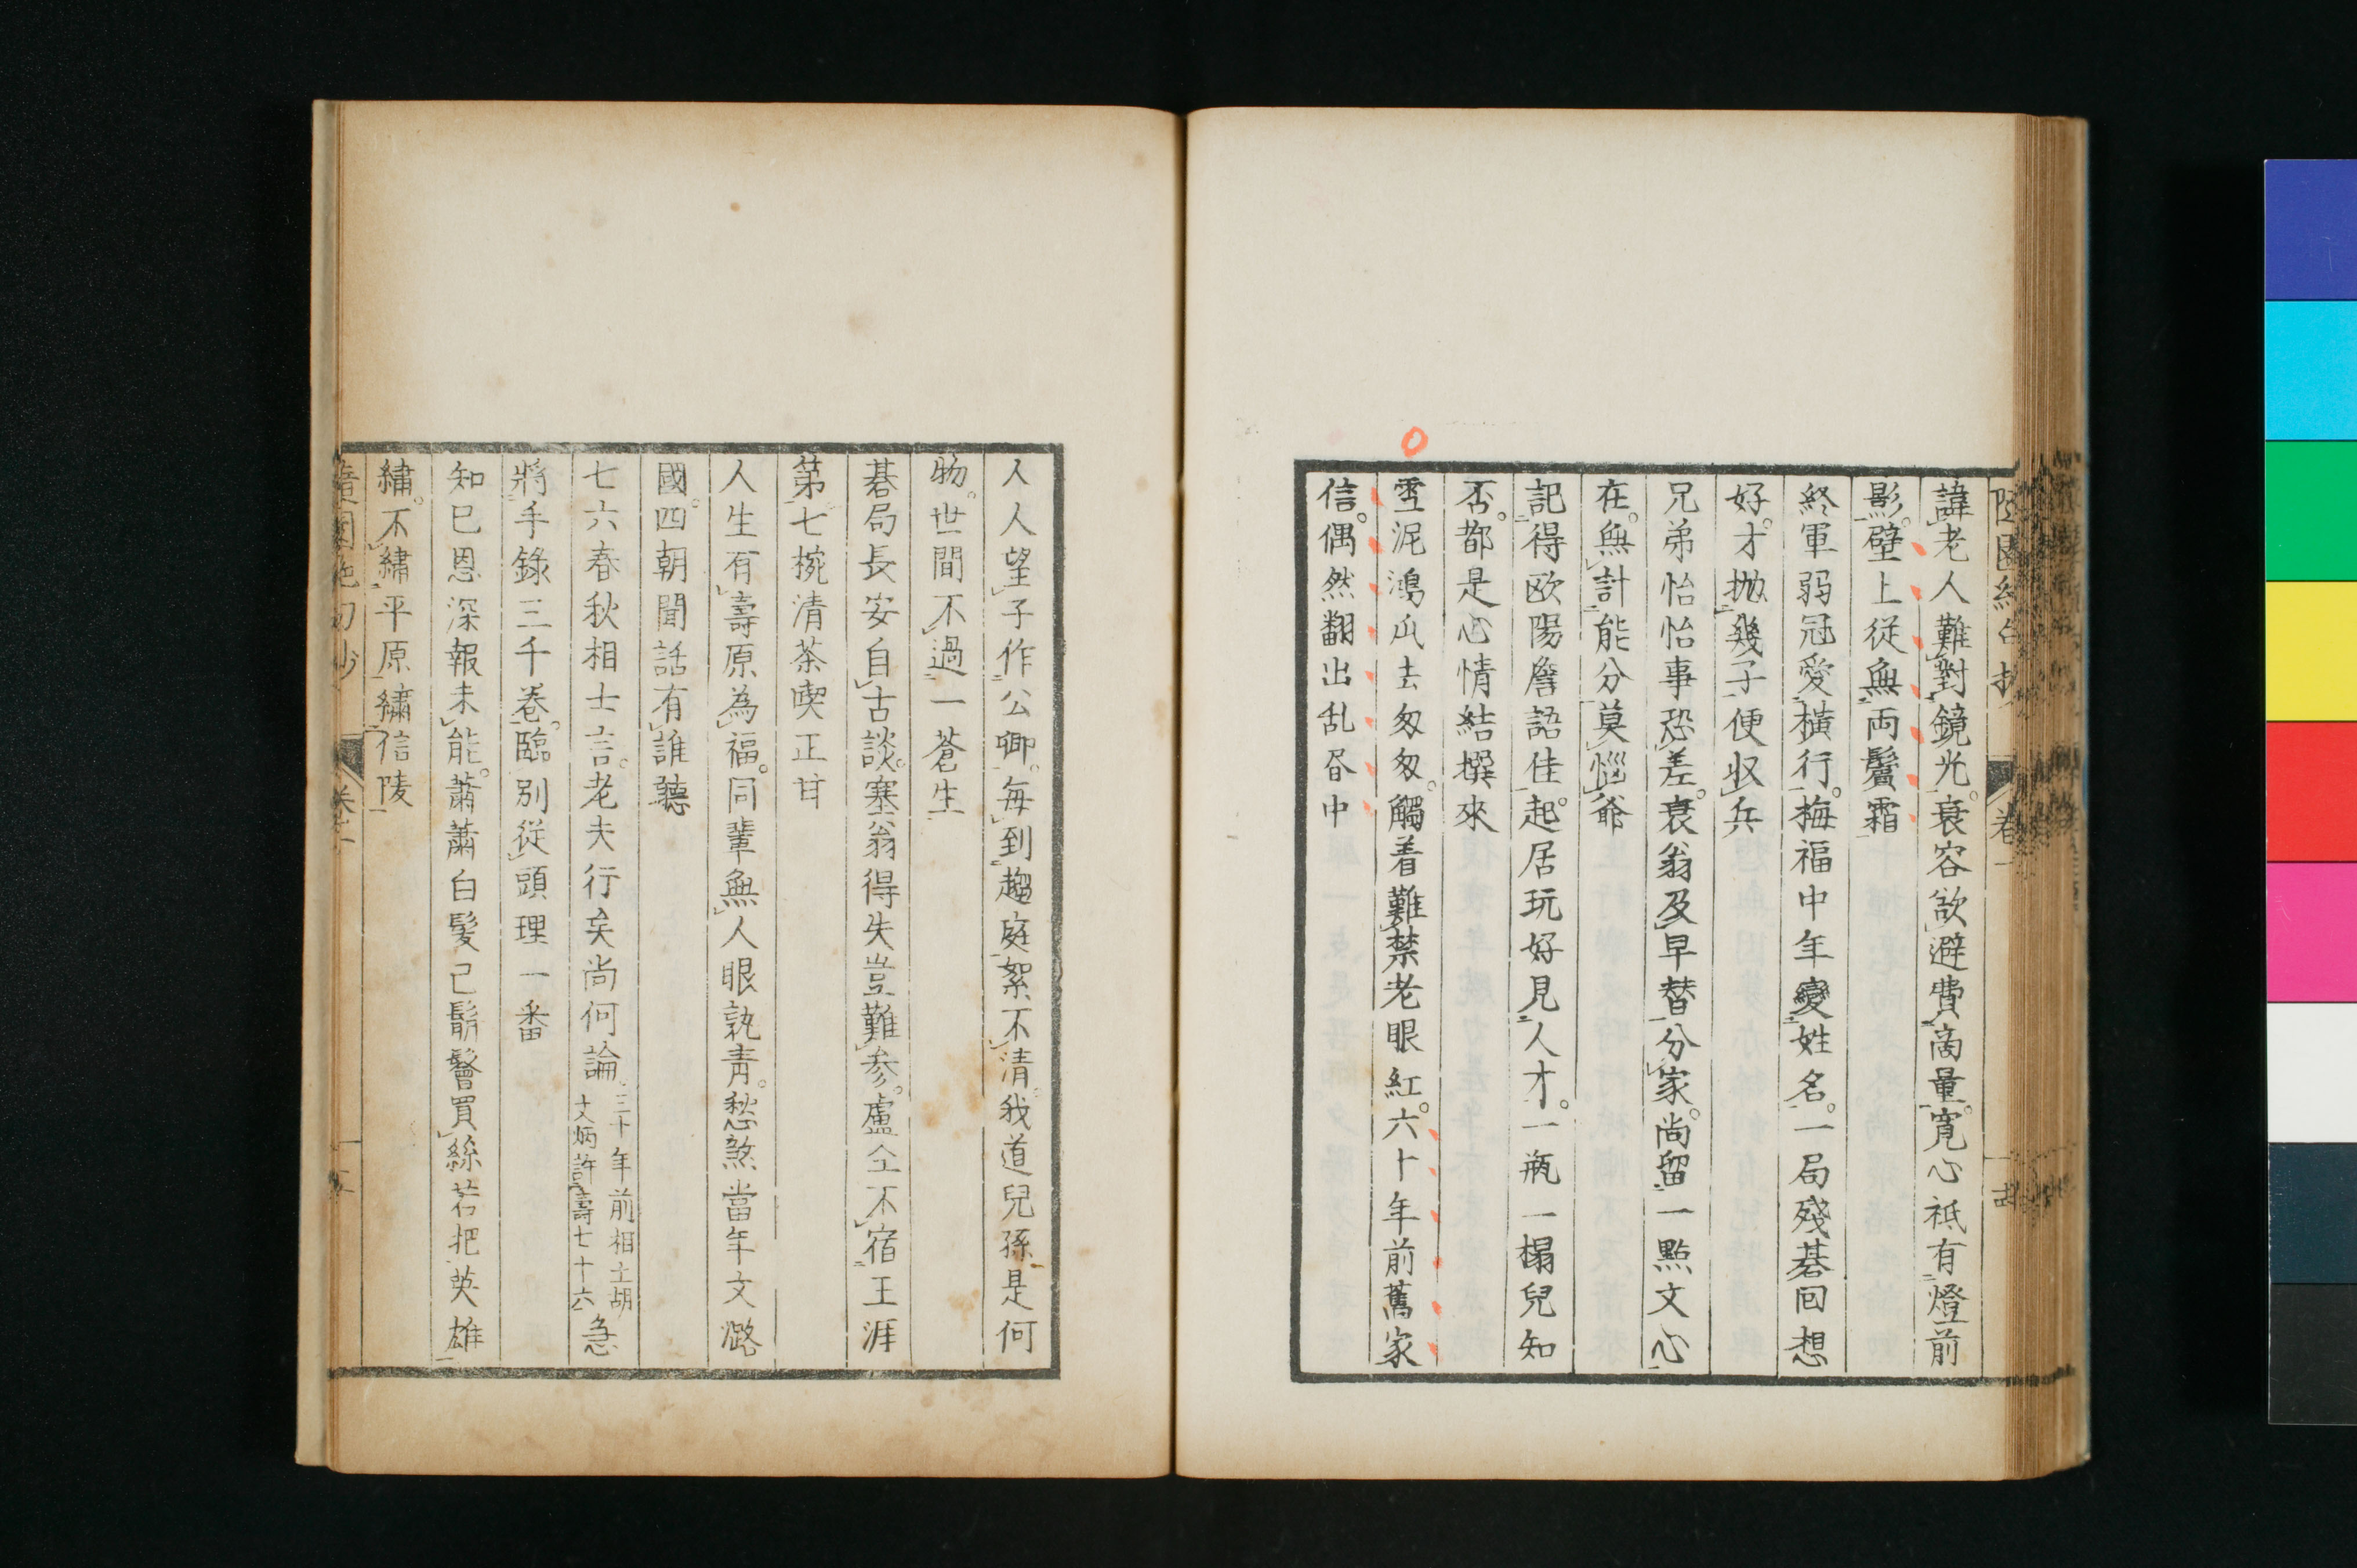 諱老人難對鏡光。衰容欲避費商量。寛心祇有燈前
影。壁上從無両鬢霜
終軍弱冠愛橫行。梅福中年變姓名。一局殘碁回想
好。才抛幾子便収兵
兄弟怡怡事恐差。衰翁及早替分家。尚留一點文心
在。無計能分莫惱爺
記得欧陽詹語佳。起居玩好見人才。一瓶一榻兒知
否。都是心情結撰來
雪泥鴻爪去匆匆。觸着難禁老眼紅。六十年前舊家
信。偶然翻出乱昏中
卷一
人人望子作公卿。每到趨庭絮不清。我道兒孫是何
物。世間不過一蒼生
碁局長安自古談。塞翁得失豈難參。盧仝不宿王涯
第。七椀清茶喫正甘
人生有壽原為福。同輩無人眼孰青。愁煞當年文潞
國。四朝聞話有誰聽
七六春秋相士言。老夫行矣尚何論。三十年前相士胡
文炳許壽七十六急
將手錄三千卷。臨別從頭理一番
知已恩深報未能。蕭蕭白髮已鬅鬙買絲若把英雄
繡。不繡平原繡信陵